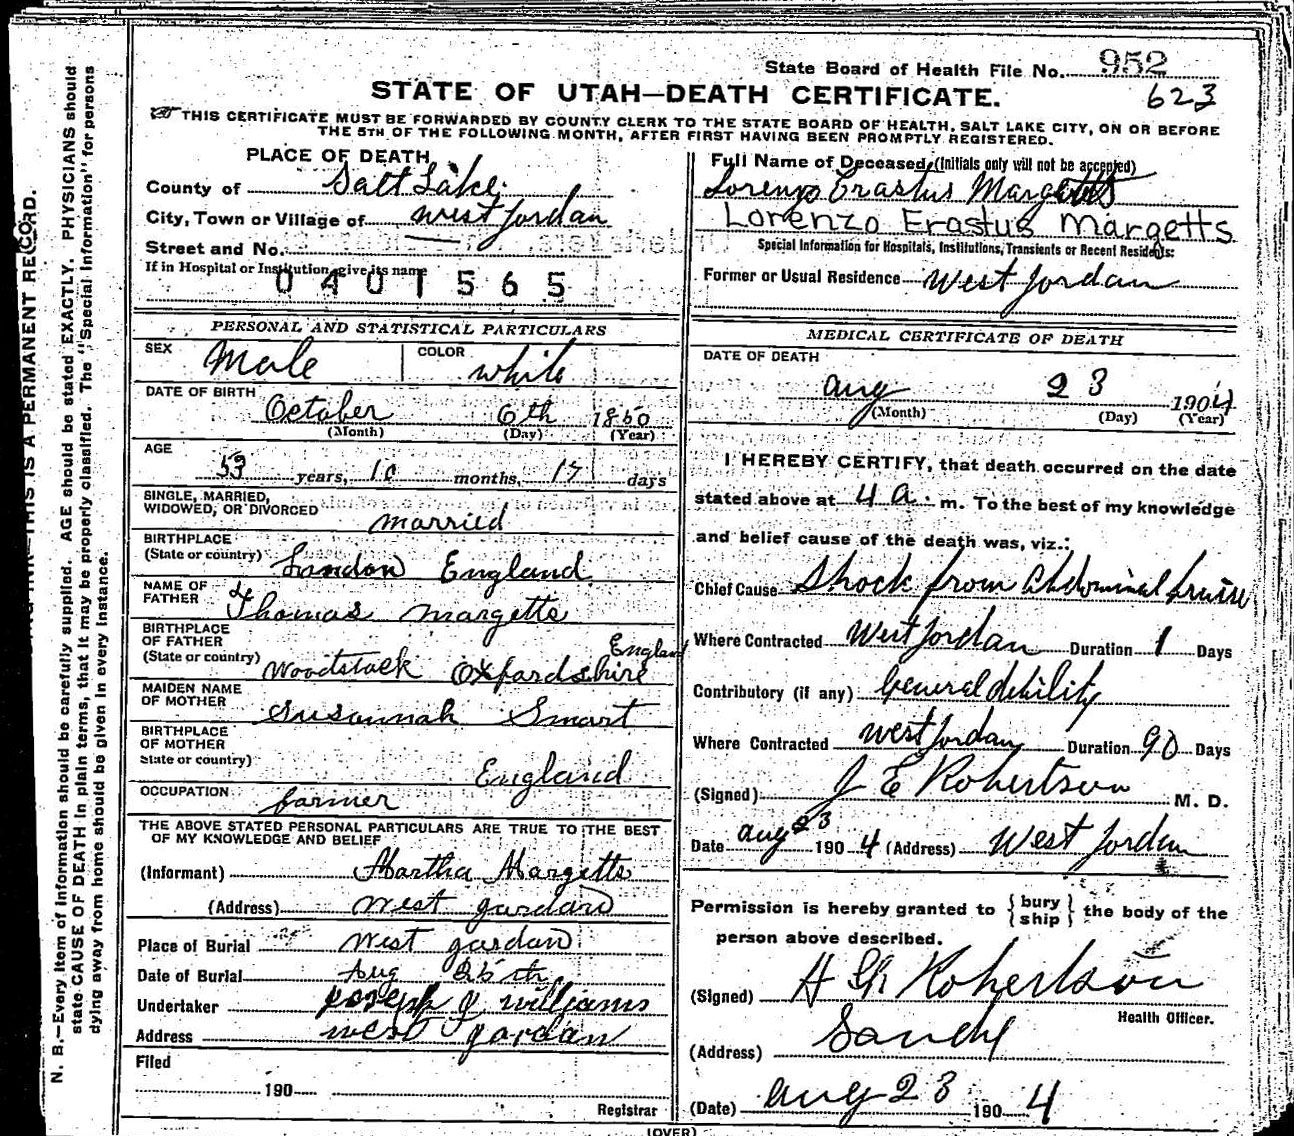 State Board of Health File No. 952
623
STATE OF UTAH—DEATH CERTIFICATE.
THIS CERTIFICATE MUST BE FORWARDED BY COUNTY CLERK TO THE STATE BOARD OF HEALTH, SALT LAKE CITY, ON OR BEFORE
THE 5TH OF THE FOLLOWING MONTH, AFTER FIRST HAVING BEEN PROMPTLY REGISTERED.
PLACE OF DEATH
County of Salt Lake
City, Town or Village of West Jordan
Street and No.
If in Hospital or Institution give its name
0401565
Full Name of Deceased (Initials only will not be accepted)
Lorenzo Erastus Margetts
Lorenzo Erastus Margetts
Special Information for Hospitals, Institutions, Transients or Recent Residents:
Former or Usual Residence West Jordan
PERSONAL AND STATISTICAL PARTICULARS
SEX Male COLOR white
DATE OF BIRTH October 6th 1850
(Month) (Day) (Year)
AGE 53 years, 10 months, 17 days
SINGLE, MARRIED,
WIDOWED, OR DIVORCED married
BIRTHPLACE
(State or country) London England
NAME OF
FATHER Thomas Margetts
BIRTHPLACE
OF FATHER England
(State or country) Woodstock Oxfordshire
MAIDEN NAME
OF MOTHER Susannah Smart
BIRTHPLACE
OF MOTHER
State or country) England
OCCUPATION farmer
THE ABOVE STATED PERSONAL PARTICULARS ARE TRUE TO THE BEST
OF MY KNOWLEDGE AND BELIEF
(Informant) Martha Margetts
(Address) West Jordan
Place of Burial West Jordan
Date of Burial Aug 25th
Undertaker Joseph Y Williams
Address West Jordan
Filed
190
Registrar
MEDICAL CERTIFICATE OF DEATH
DATE OF DEATH
Aug 23 1904
(Month) (Day) (Year)
I HEREBY CERTIFY, that death occurred on the date
stated above at 4 a. m. To the best of my knowledge
and belief cause of the death was, viz.:
Chief Cause Shock from Abdominal bruise
Where Contracted West Jordan Duration 1 Days
Contributory (if any) General debility
Where Contracted West Jordan Duration 90 Days
(Signed) J E Robertson M. D.
Date Aug 23 1904 (Address) West Jordan
Permission is hereby granted to {bury
ship} the body of the
person above described.
(Signed) Robertson
Health Officer.
(Address) Sandy
(Date) Aug 23 1904
(OVER)
THIS IS A PERMANENT RECORD.
N. B.—Every item of Information should be carefully supplied. AGE should be stated EXACTLY. PHYSICIANS should
state CAUSE OF DEATH in plain terms, that it may be properly classified. The "Special Information" for persons
dying away from home should be given in every instance.